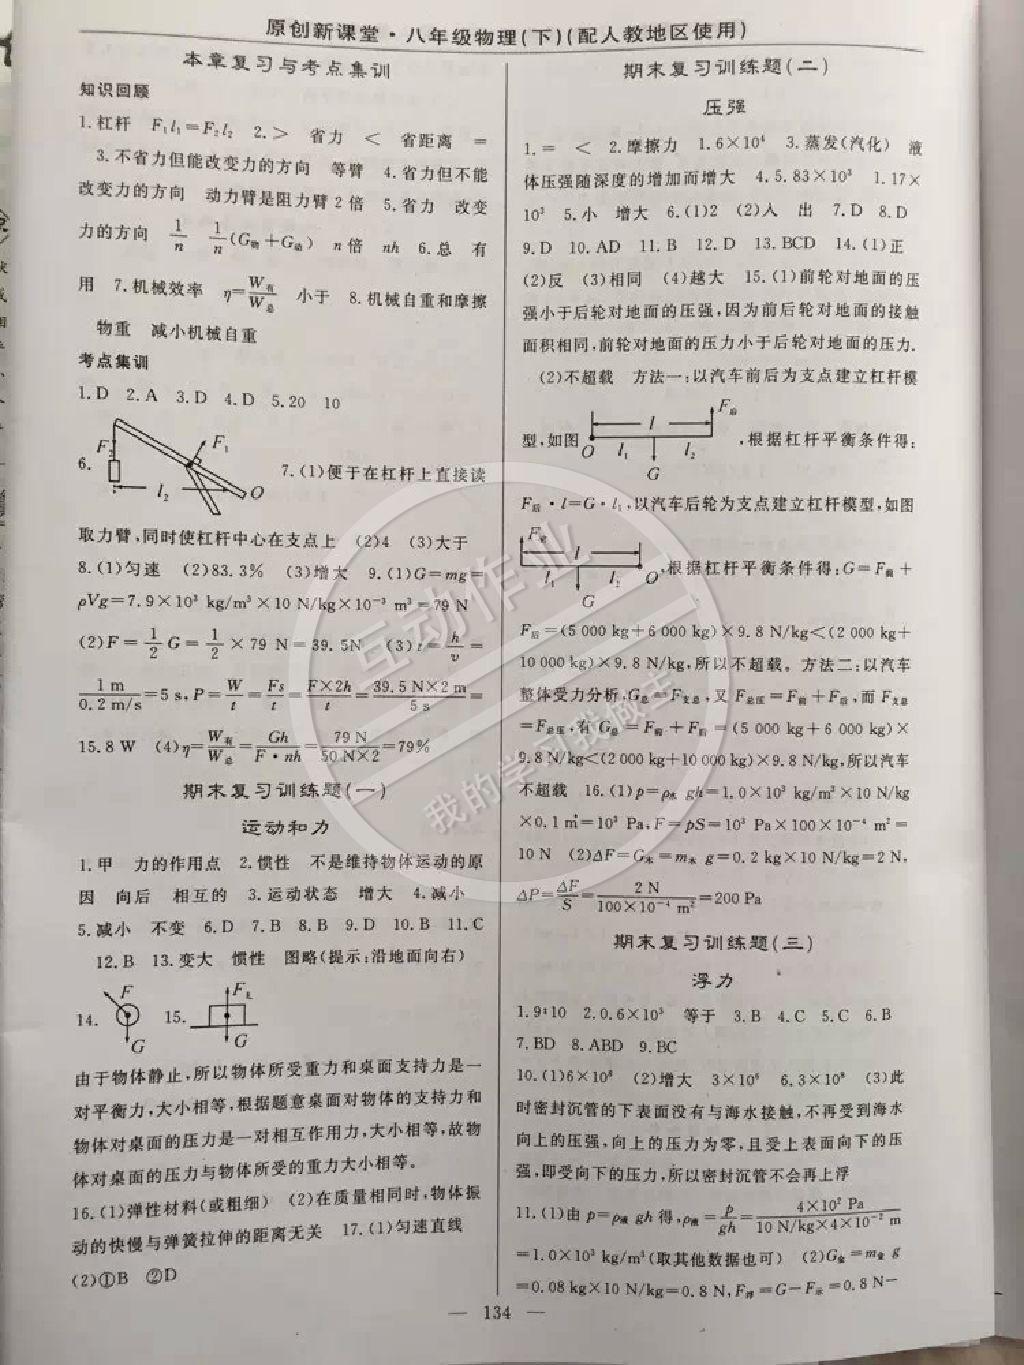 原创新课堂·八年级物理(下)(配人教地区使用)
本章复习与考点集训
知识回顾
1.杠杆 F₁l₁=F₂l₂ 2.> 省力 < 省距离 =
3.不省力但能改变力的方向 等臂 4.省力但不能
改变力的方向 动力臂是阻力臂2倍 5.省力 改变
力的方向 1/n 1/n(G物+G动) n倍 nh 6.总 有
用 7.机械效率 η=W有/W总 小于 8.机械自重和摩擦
物重 减小机械自重
考点集训
1.D 2.A 3.D 4.D 5.20 10
6. F₂ F₁ l₂ O 7.(1)便于在杠杆上直接读
取力臂,同时使杠杆中心在支点上 (2)4 (3)大于
8.(1)匀速 (2)83.3% (3)增大 9.(1)G=mg=
ρVg=7.9×10³ kg/m³×10 N/kg×10⁻³ m³=79 N
(2)F=1/2 G=1/2×79 N=39.5N (3)t=h/v=
1 m/0.2 m/s=5 s,P=W/t=Fs/t=F×2h/t=39.5 N×2 m/5 s=
15.8 W (4)η=W有/W总=Gh/F·nh=79 N/50 N×2=79%
期末复习训练题(一)
运动和力
1.甲 力的作用点 2.惯性 不是维持物体运动的原
因 向后 相互的 3.运动状态 增大 4.减小
5.减小 不变 6.D 7.B 8.B 9.D 10.B 11.C
12.B 13.变大 惯性 图略(提示:沿地面向右)
14. F G 15. G
由于物体静止,所以物体所受重力和桌面支持力是一
对平衡力,大小相等,根据题意桌面对物体的支持力和
物体对桌面的压力是一对相互作用力,大小相等,故物
体对桌面的压力与物体所受的重力大小相等。
16.(1)弹性材料(或粗细) (2)在质量相同时,物体振
动的快慢与弹簧拉伸的距离无关 17.(1)匀速直线
(2)①B ②D
期末复习训练题(二)
压强
1.= < 2.摩擦力 1.6×10⁴ 3.蒸发(汽化) 液
体压强随深度的增加而增大 4.5.83×10³ 1.17×
10³ 5.小 增大 6.(1)2 (2)人 出 7.D 8.D
9.D 10.AD 11.B 12.D 13.BCD 14.(1)正
(2)反 (3)相同 (4)越大 15.(1)前轮对地面的压
强小于后轮对地面的压强,因为前后轮对地面的接触
面积相同,前轮对地面的压力小于后轮对地面的压力.
(2)不超载 方法一:以汽车前后为支点建立杠杆模
型,如图 O l l₁ l₂ G F后 ,根据杠杆平衡条件得:
F后·l=G·l₁,以汽车后轮为支点建立杠杆模型,如图
l l₁ l₂ G O ,根据杠杆平衡条件得:G=F前+
F后=(5 000 kg+6 000 kg)×9.8 N/kg<(2 000 kg+
10 000 kg)×9.8 N/kg,所以不超载。方法二:以汽车
整体受力分析,G总=F支总,又F总压=F前+F后,而F支总
=F总压,有G总=F前+F后=(5 000 kg+6 000 kg)×
9.8 N/kg<(2 000 kg+10 000 kg)×9.8 N/kg,所以汽车
不超载 16.(1)p=ρ水gh=1.0×10³ kg/m³×10 N/kg
×0.1 m=10³ Pa,F=pS=10³ Pa×100×10⁻⁴ m²=
10 N (2)ΔF=G水=m水g=0.2 kg×10 N/kg=2 N,
ΔP=ΔF/S=2 N/100×10⁻⁴ m²=200 Pa
期末复习训练题(三)
浮力
等于 3.B 4.C 5.C 6.B
7.BD 8.ABD 9.BC
(2)增大 (3)此
时密封沉管的下表面没有与海水接触,不再受到海水
向上的压强,向上的压力为零,且受上表面向下的压
强,即受向下的压力,所以密封沉管不会再上浮
11.(1)由p=ρ液gh得,ρ液=p/gh=4×10² Pa/10 N/kg×4×10⁻² m
=1.0×10³ kg/m³(取其他数据也可) (2)G金=m金g
=0.08 kg×10 N/kg=0.8 N,F浮=G-F示=0.8 N-
— 134 —
互动作业
我的学习我做主